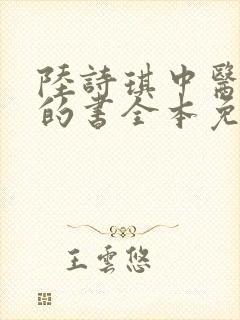 陸詩琪中醫
的書全本免
王雲悠